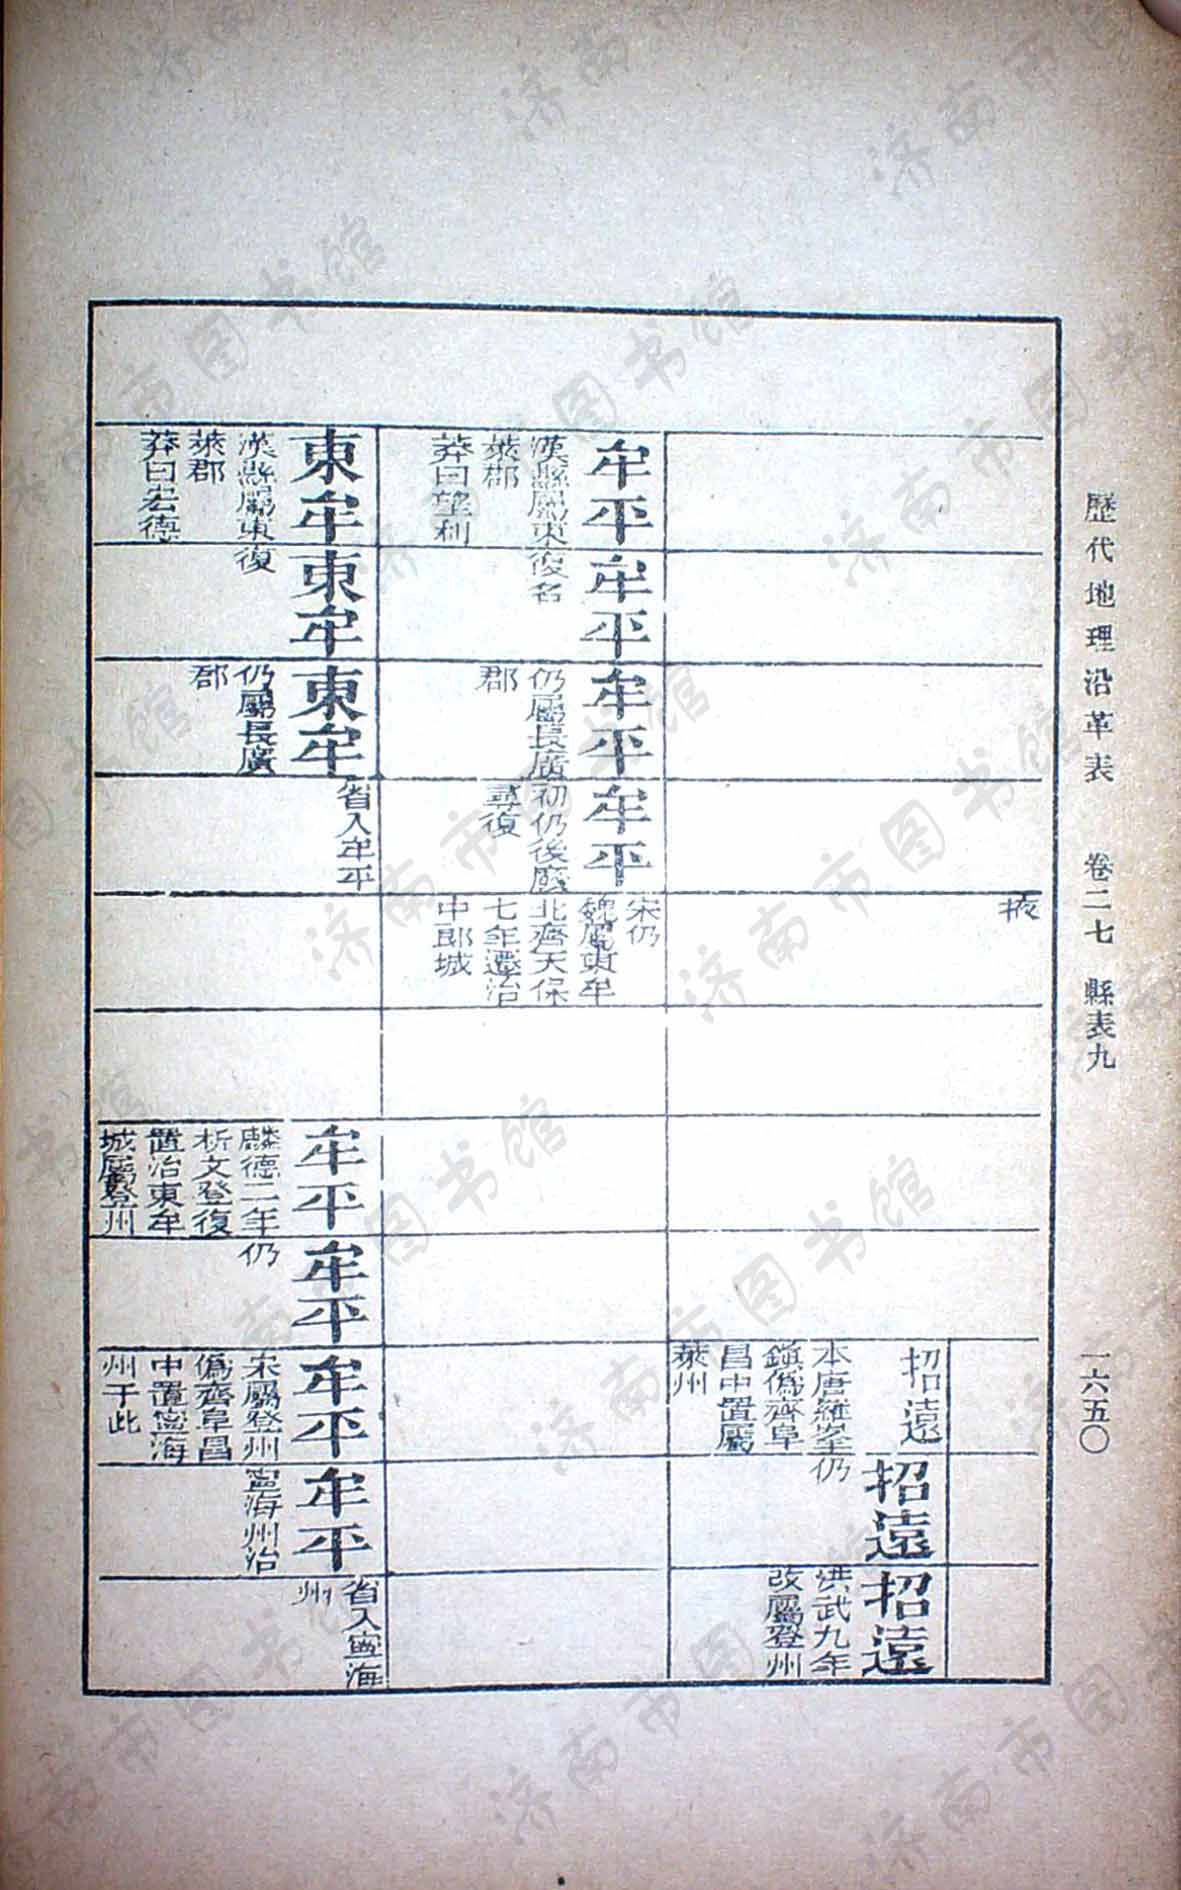 歷代地理沿革表 卷二七 縣表九 一六五〇
掖
招遠
本唐羅峯
鎭僞齊阜
昌中置屬
萊州
招遠
仍
招遠
洪武九年
改屬登州
牟平
漢縣屬東
萊郡
莽曰望利
牟平
復名
牟平
仍屬長廣
郡
牟平
初仍後廢
尋復
宋仍
魏屬東牟
北齊天保
七年遷治
中郎城
東牟
漢縣屬東
萊郡
莽曰宏德
東牟
復
東牟
仍屬長廣
郡
省入牟平
牟平
麟德二年
析文登復
置治東牟
城屬登州
牟平
仍
牟平
宋屬登州
僞齊阜昌
中置寧海
州于此
牟平
寧海州治
省入寧海
州
济南市图书馆